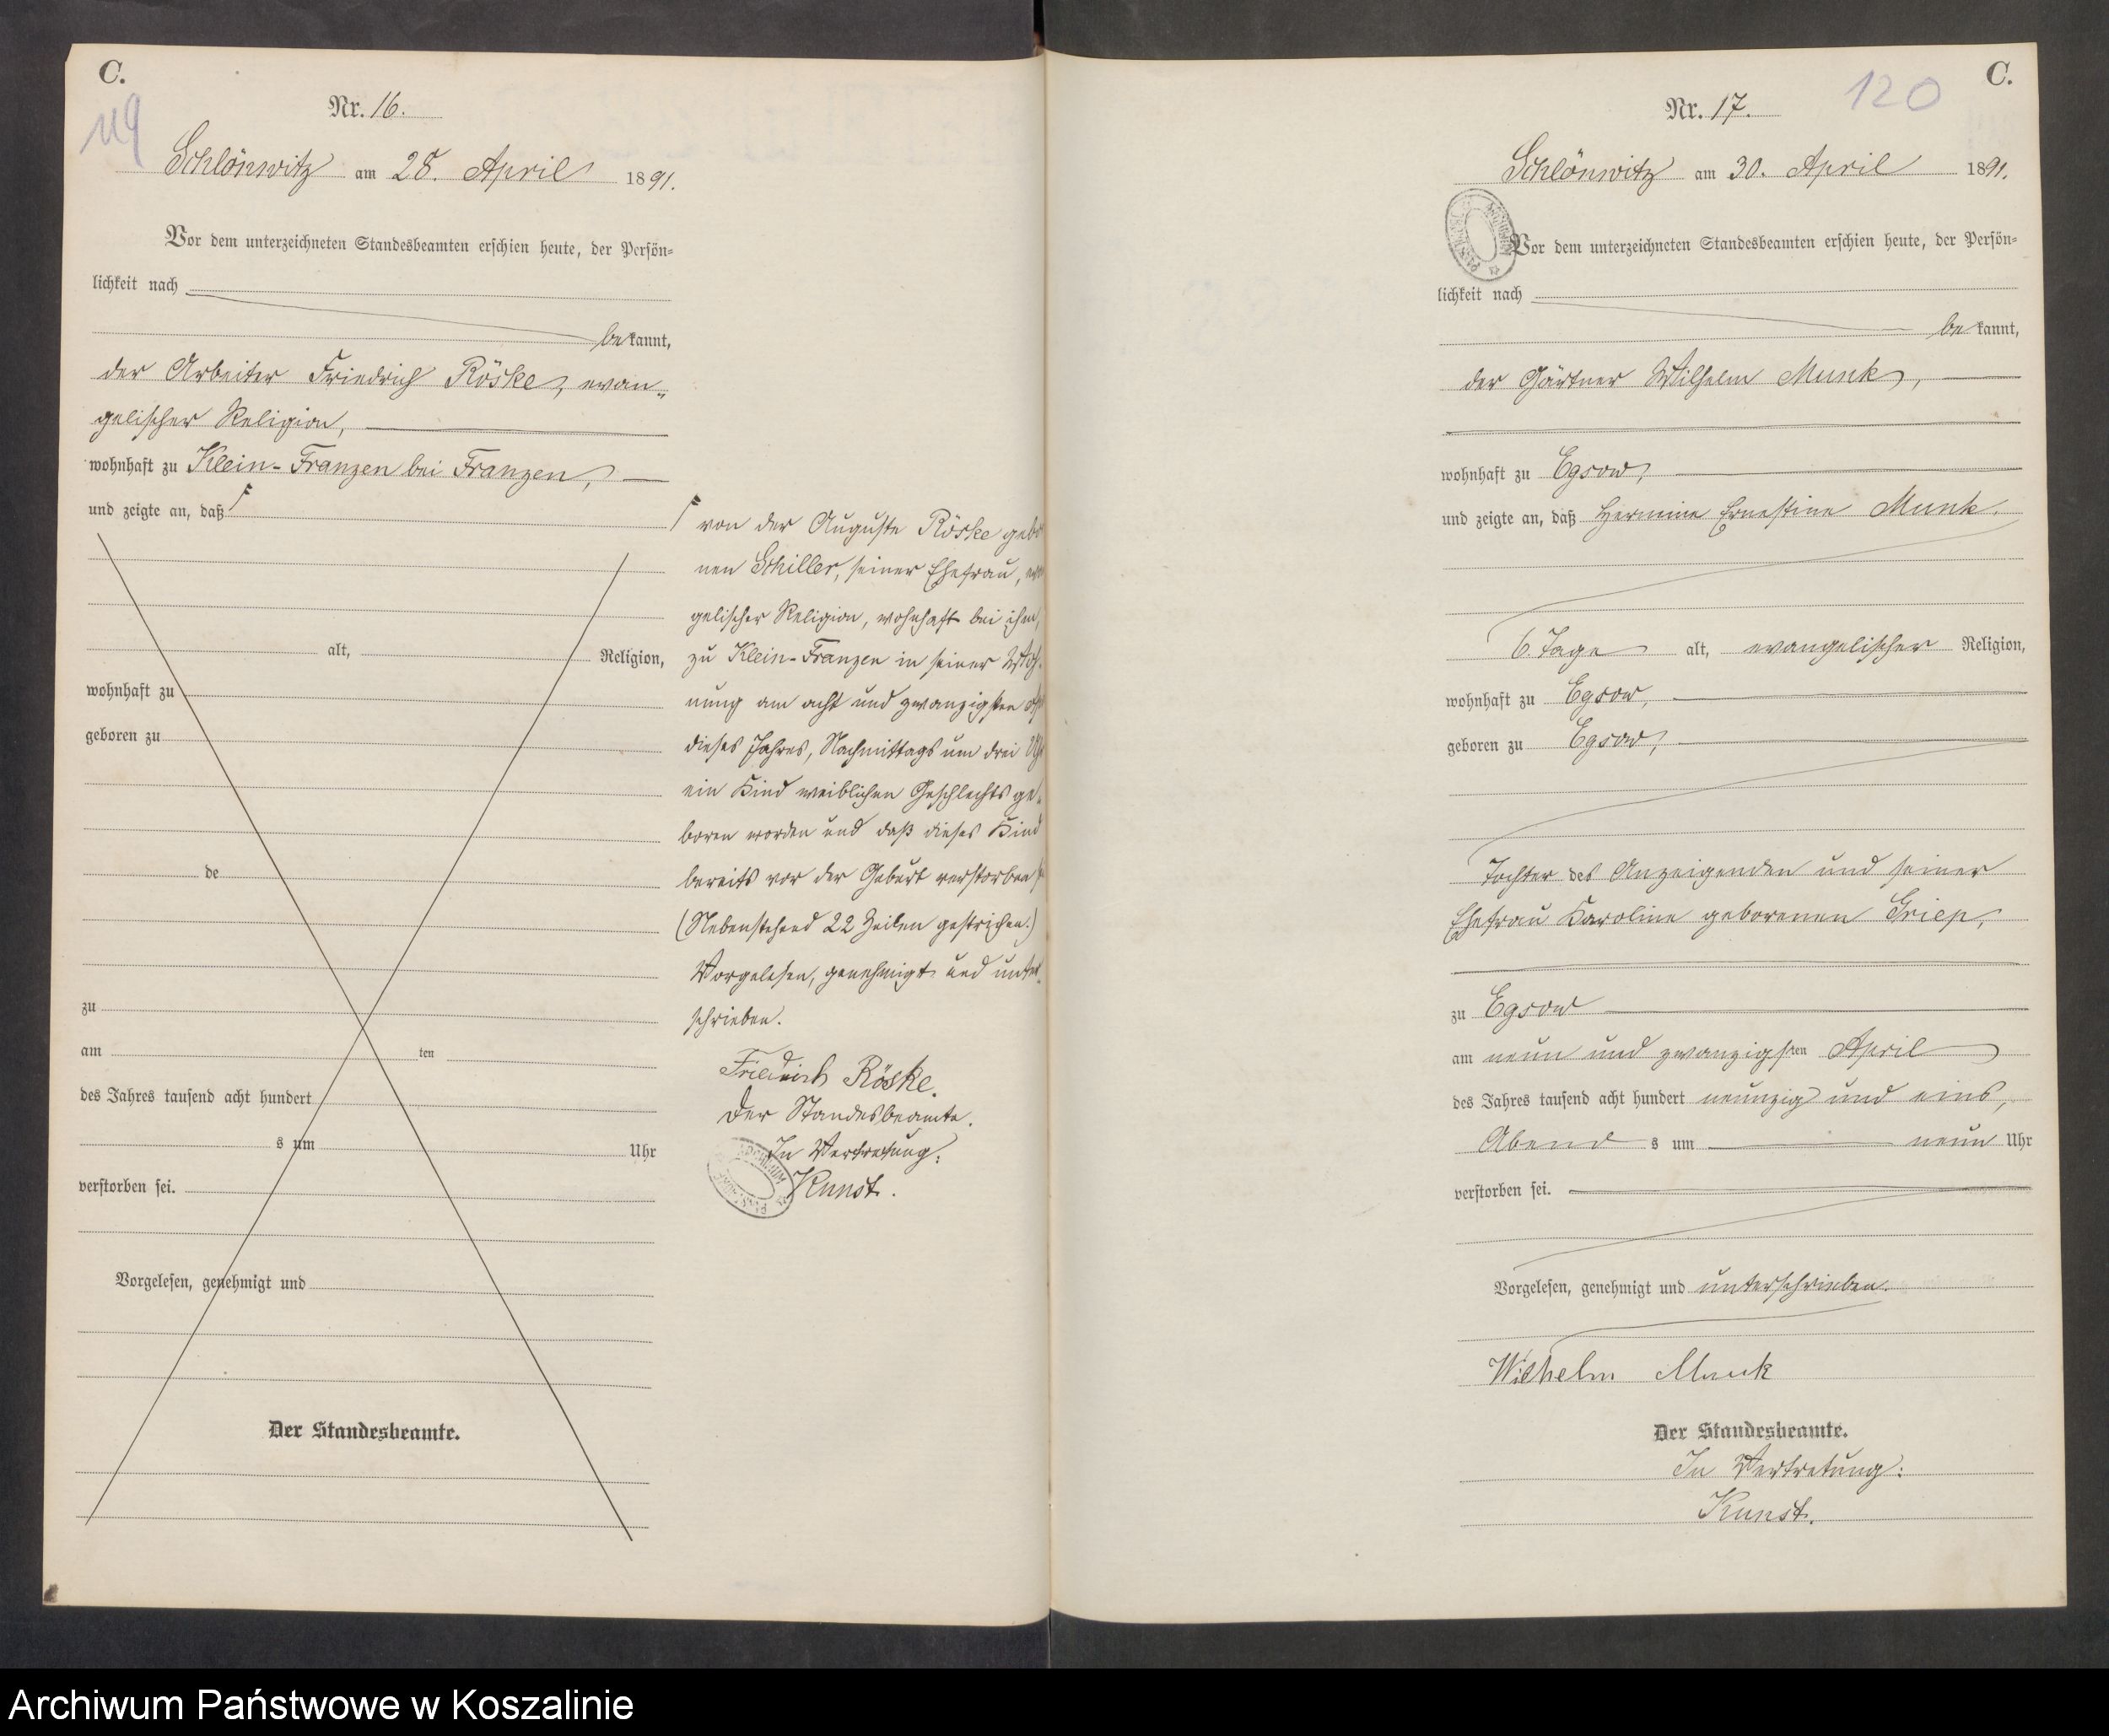 C.
119
Nr. 16.
Schlönwitz am 28. April 1891.
Vor dem unterzeichneten Standesbeamten erschien heute, der Persön-
lichkeit nach
bekannt,
der Arbeiter Friedrich Röske, evan-
gelischer Religion,
wohnhaft zu Klein-Franzen bei Franzen,
und zeigte an, daß
alt, Religion,
wohnhaft zu
geboren zu
de
zu
am ten
des Jahres tausend acht hundert
s um Uhr
verstorben sei.
Vorgelesen, genehmigt und
Der Standesbeamte.
von der Auguste Röske gebo
nen Schiller, seiner Ehefrau, evan
gelischer Religion, wohnhaft bei ihm,
zu Klein-Franzen in seiner Woh-
nung am acht und zwanzigsten Ap
dieses Jahres, Nachmittags um drei Uhr
ein Kind weiblichen Geschlechts ge-
boren worden und daß dieses Kind
bereits vor der Geburt verstorben
(Nebenstehend 22 Zeilen gestrichen.)
Vorgelesen, genehmigt und unter-
schrieben.
Friedrich Röske.
Der Standesbeamte.
In Vertretung:
Kunst.
C.
120
Nr. 17.
Schlönwitz am 30. April 1891.
Vor dem unterzeichneten Standesbeamten erschien heute, der Persön-
lichkeit nach
bekannt,
der Gärtner Wilhelm Munk,
wohnhaft zu Egsow,
und zeigte an, daß Hermine Ernestine Munk.
6. Tage alt, evangelischer Religion,
wohnhaft zu Egsow,
geboren zu Egsow,
Tochter des Anzeigenden und seiner
Ehefrau Karoline geborenen Griep,
zu Egsow
am neun und zwanzigsten April
des Jahres tausend acht hundert neunzig und eins,
Abend s um neun Uhr
verstorben sei.
Vorgelesen, genehmigt und unterschrieben.
Wilhelm Munk
Der Standesbeamte.
In Vertretung:
Kunst.
Archiwum Państwowe w Koszalinie